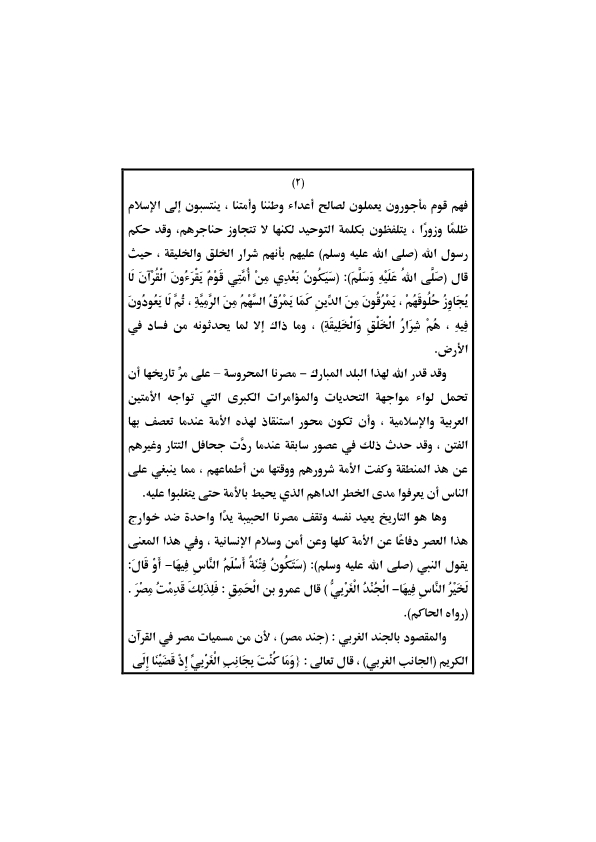 (٢)
فهم قوم مأجورون يعملون لصالح أعداء وطننا وأمتنا ، ينتسبون إلى الإسلام
ظلمًا وزورًا ، يتلفظون بكلمة التوحيد لكنها لا تتجاوز حناجرهم، وقد حكم
رسول الله (صلى الله عليه وسلم) عليهم بأنهم شرار الخلق والخليقة ، حيث
قال (صَلَّى اللهُ عَلَيْهِ وَسَلَّمَ): (سَيَكُونُ بَعْدِي مِنْ أُمَّتِي قَوْمٌ يَقْرَءُونَ الْقُرْآنَ لَا
يُجَاوِزُ حُلُوقَهُمْ ، يَمْرُقُونَ مِنَ الدِّينِ كَمَا يَمْرُقُ السَّهْمُ مِنَ الرَّمِيَّةِ ، ثُمَّ لَا يَعُودُونَ
فِيهِ ، هُمْ شِرَارُ الْخَلْقِ وَالْخَلِيقَةِ) ، وما ذاك إلا لما يحدثونه من فساد في
الأرض.
وقد قدر الله لهذا البلد المبارك – مصرنا المحروسة – على مرِّ تاريخها أن
تحمل لواء مواجهة التحديات والمؤامرات الكبرى التي تواجه الأمتين
العربية والإسلامية ، وأن تكون محور استنقاذ لهذه الأمة عندما تعصف بها
الفتن ، وقد حدث ذلك في عصور سابقة عندما ردَّت جحافل التتار وغيرهم
عن هذ المنطقة وكفت الأمة شرورهم ووقتها من أطماعهم ، مما ينبغي على
الناس أن يعرفوا مدى الخطر الداهم الذي يحيط بالأمة حتى يتغلبوا عليه.
وها هو التاريخ يعيد نفسه وتقف مصرنا الحبيبة يدًا واحدة ضد خوارج
هذا العصر دفاعًا عن الأمة كلها وعن أمن وسلام الإنسانية ، وفي هذا المعنى
يقول النبي (صلى الله عليه وسلم): (سَتَكُونُ فِتْنَةٌ أَسْلَمُ النَّاسِ فِيهَا– أَوْ قَالَ:
لَخَيْرُ النَّاسِ فِيهَا– الْجُنْدُ الْغَرْبِيُّ ) قال عمرو بن الْحَمِقِ : فَلِذَلِكَ قَدِمْتُ مِصْرَ .
(رواه الحاكم).
والمقصود بالجند الغربي : (جند مصر) ، لأن من مسميات مصر في القرآن
الكريم (الجانب الغربي) ، قال تعالى : {وَمَا كُنْتَ بِجَانِبِ الْغَرْبِيِّ إِذْ قَضَيْنَا إِلَى